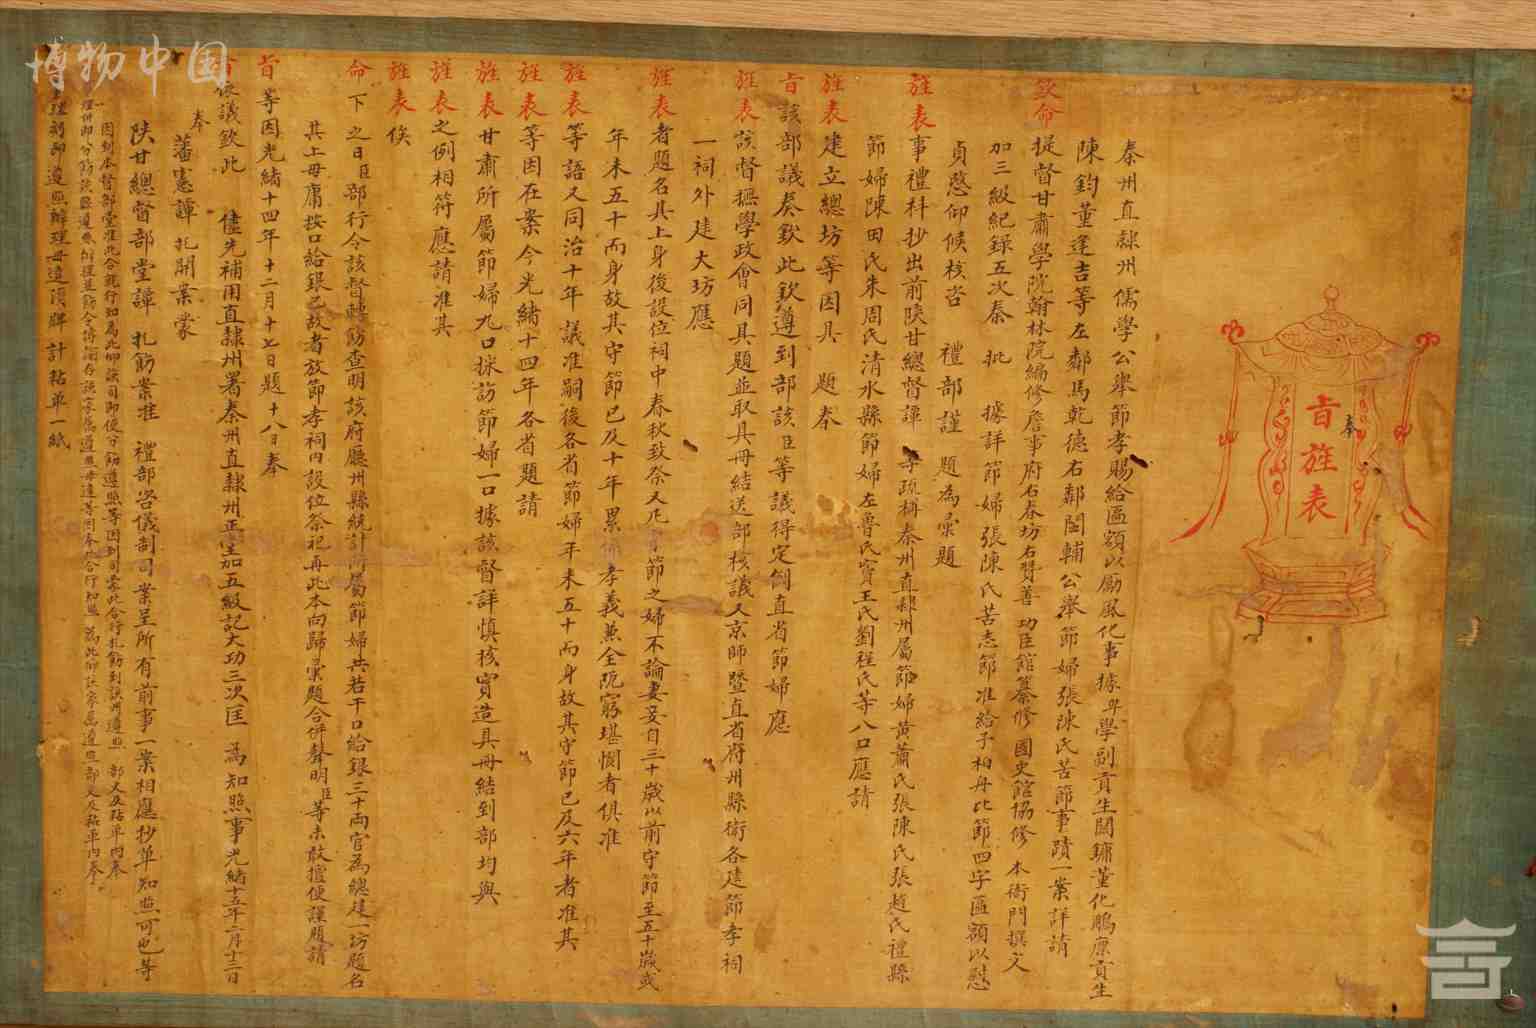 奉
旨旌表
秦州直隸州儒學公舉節孝賜給匾額以勵風化事據卑學副貢生閻鏞董化鵬廪貢生
陳鈞董逢吉等左鄰馬乾德右鄰閻輔公舉節婦張陳氏苦節事蹟一案詳請
欽命提督甘肅學院翰林院編修詹事府右春坊右贊善功臣館纂修國史館協修本衙門撰文
加三級紀録五次秦批據詳節婦張陳氏苦志節准給予柏舟比節四字匾額以慰
貞慰仰候核咨禮部謹題為彙題
旌表事禮科抄出前陝甘總督譚等疏稱秦州直隸州屬節婦黄蕭氏張陳氏張趙氏禮縣
節婦陳田氏朱周氏清水縣節婦左魯氏竇王氏劉程氏等八口應請
旌表建立總坊等因具題奉
旨該部議奏欽此欽遵到部該臣等議得定例直省節婦應
旌表該督撫學政會同具題並取具冊結送部核議又京師暨直省府州縣衛各建節孝祠
一祠外建大坊應
旌表者題名其上身後設位祠中春秋致祭又凡節之婦不論妻妾自三十歲以前守節至五十歲或
年未五十而身故其守節已及十年累係孝義兼全阨窮堪憫者俱准
旌表等語又同治十年議准嗣後各省節婦年未五十而身故其守節已及六年者准其
旌表等因在案今光緒十四年各省題請
旌表甘肅所屬節婦九口採訪節婦一口據該督詳慎核實造具冊結到部均與
旌表之例相符應請准其
旌表俟
命下之日臣部行令該督轉飭查明該府廳州縣統計所屬節婦共若干口給銀三十兩官為總建一坊題名
其上毋庸按口給銀已故者放節孝祠内設位祭祀再此本向歸彙題合併聲明臣等未敢擅便謹題請
旨等因光緒十四年十二月十七日題十八日奉
旨依議欽此儘先補用直隸州署秦州直隸州正堂加五級記大功三次匡為知照事光緒十五年二月十三日
奉
藩憲譚札開案蒙
陝甘總督部堂譚札飭案准禮部咨儀制司案呈所有前事一案相應抄单知照可也等
因到本督部堂准此合就行知為此仰該司即便分飭遵照等因到司蒙此合行札飭到該州遵照部文及粘单内奉
理併即分飭該縣遵照辦理並飭令傳諭各該家屬遵照毋違等因奉此合行知照為此仰該家屬遵照部文及粘单内奉
理刻即遵照辦理毋違須牌計粘单一紙
博物中国